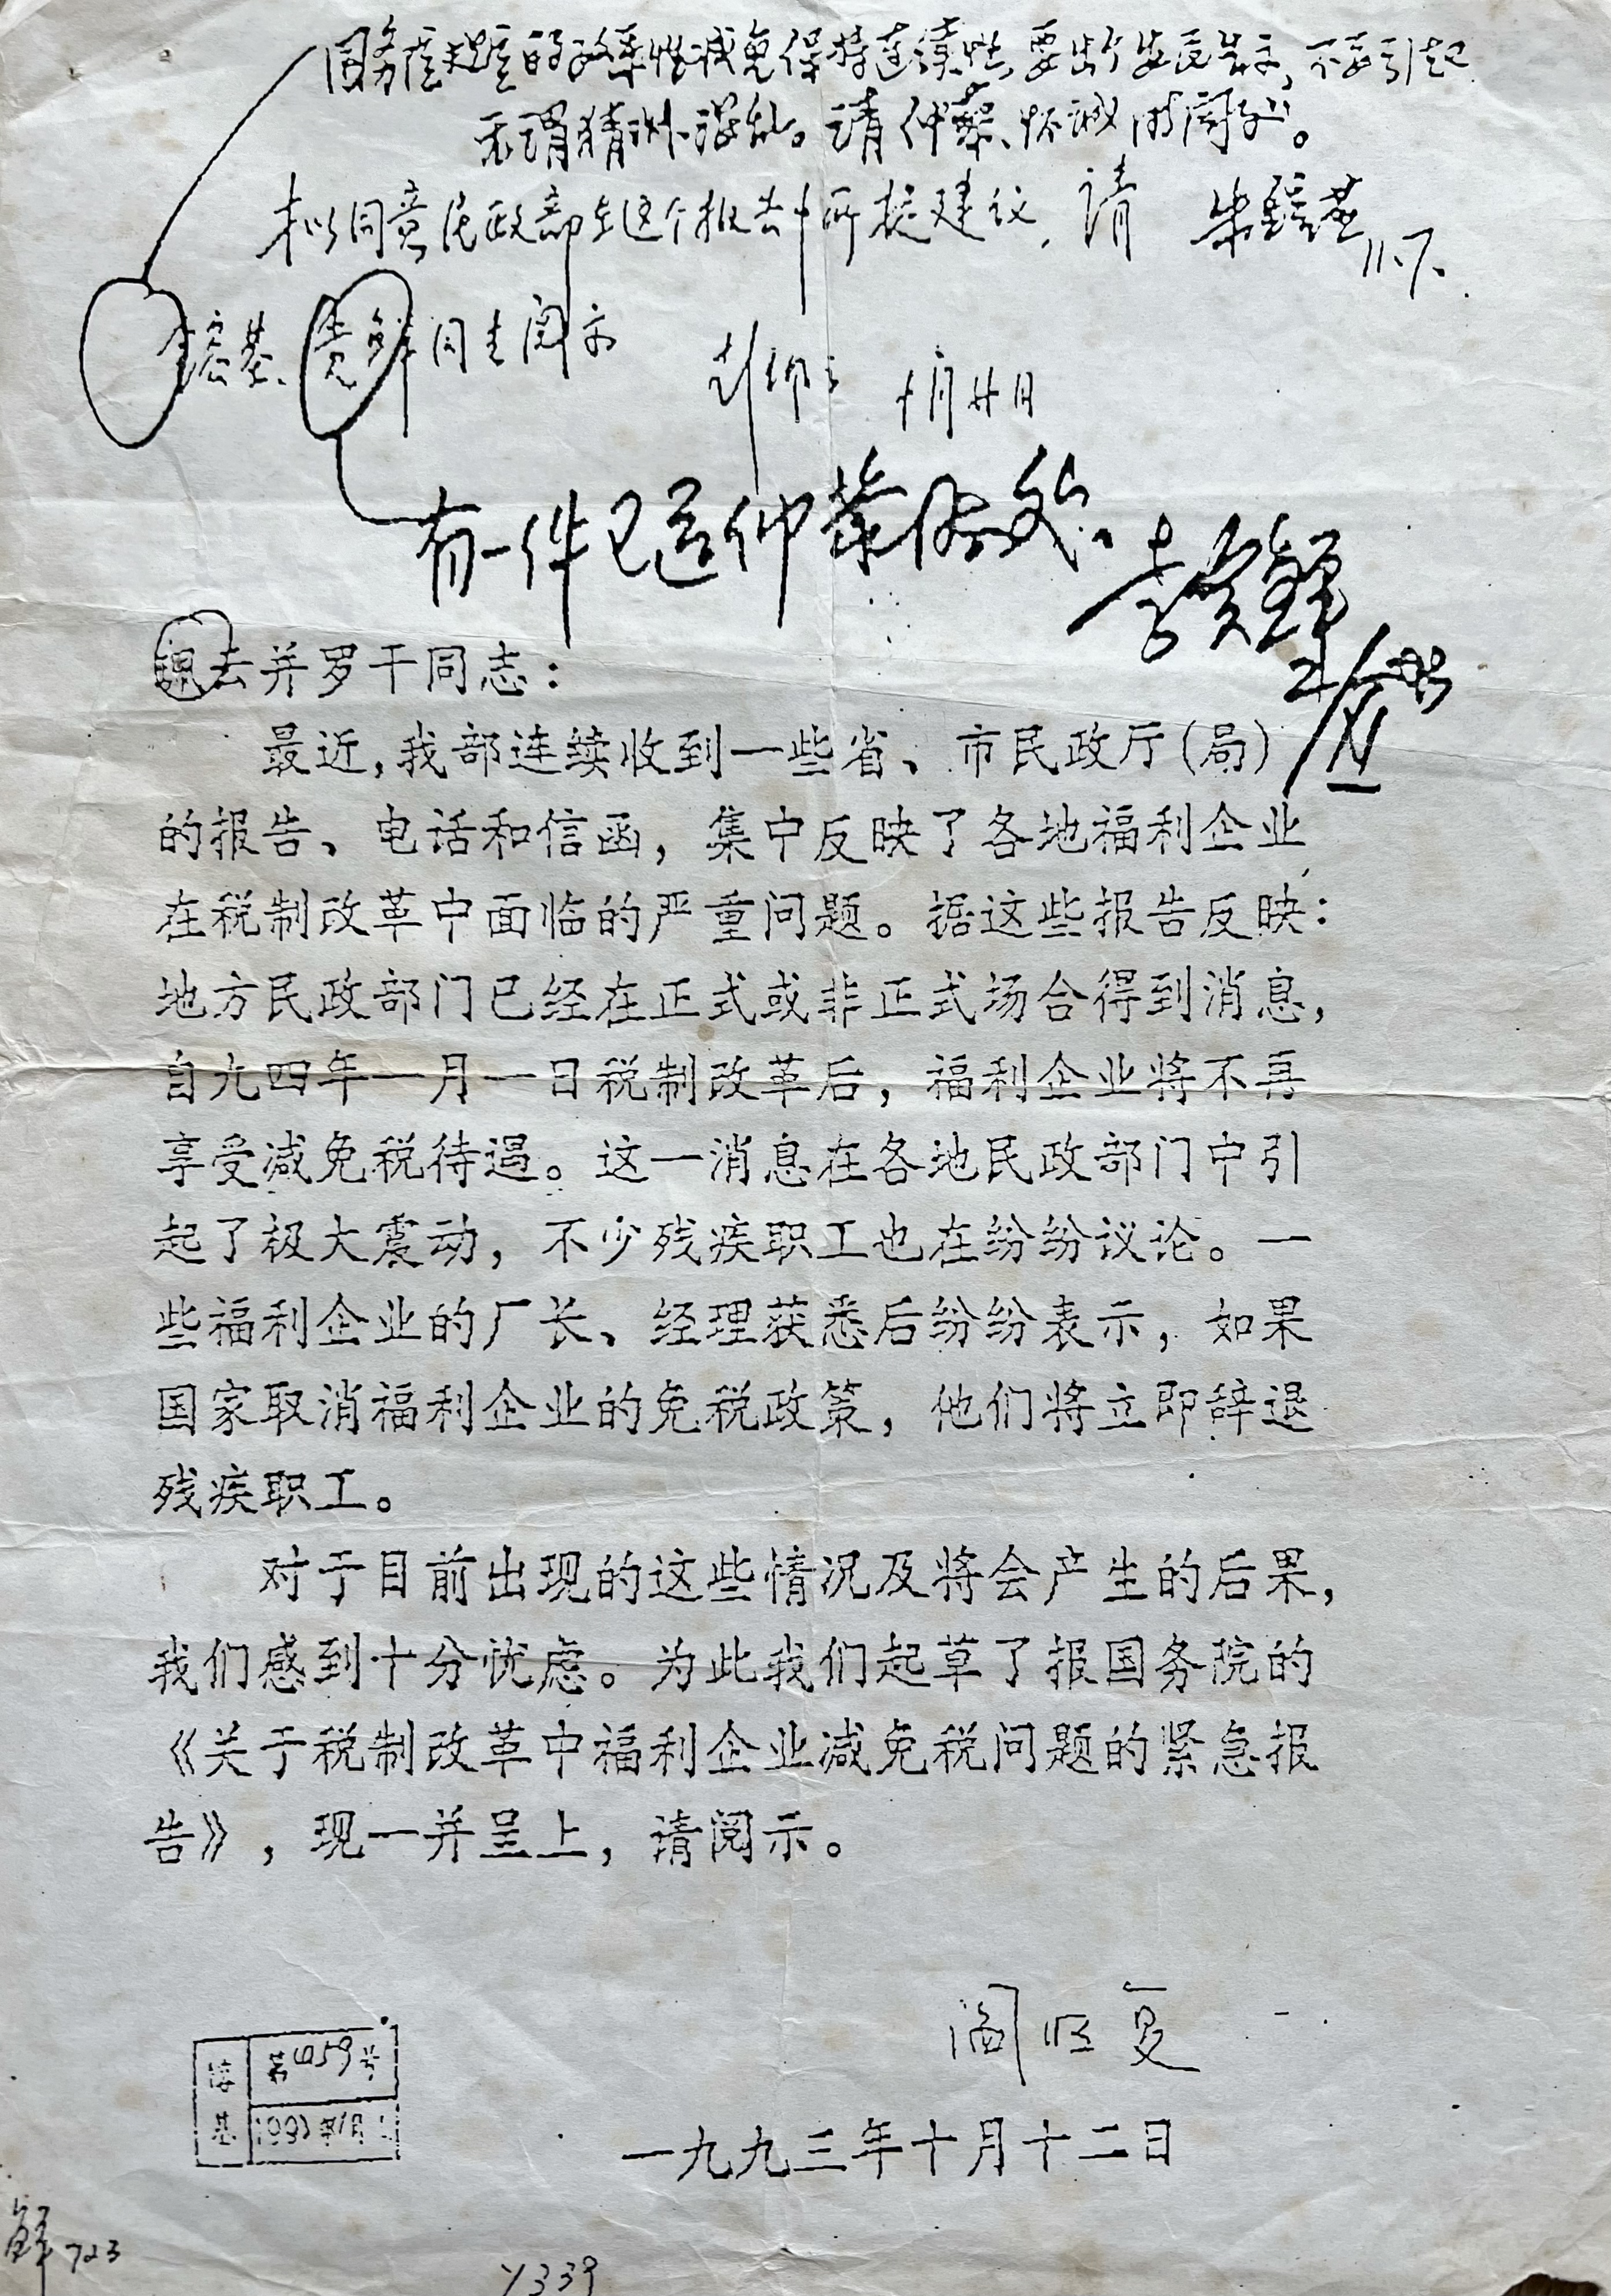 要出个安民告示,不要引起
无谓猜测混乱。请仲藜、怀诚同志阅办。
拟同意民政部在这个报告中所提建议,请
朱镕基 11.7.
镕基、贵鲜同志阅示
有一件已送仲藜
李贵鲜
去并罗干同志:
最近,我部连续收到一些省、市民政厅(局)
的报告、电话和信函,集中反映了各地福利企业
在税制改革中面临的严重问题。据这些报告反映:
地方民政部门已经在正式或非正式场合得到消息,
自九四年一月一日税制改革后,福利企业将不再
享受减免税待遇。这一消息在各地民政部门中引
起了极大震动,不少残疾职工也在纷纷议论。一
些福利企业的厂长、经理获悉后纷纷表示,如果
国家取消福利企业的免税政策,他们将立即辞退
残疾职工。
对于目前出现的这些情况及将会产生的后果,
我们感到十分忧虑。为此我们起草了报国务院的
《关于税制改革中福利企业减免税问题的紧急报
告》,现一并呈上,请阅示。
阎明复
一九九三年十月十二日
第4059号
鲜 723
Y339